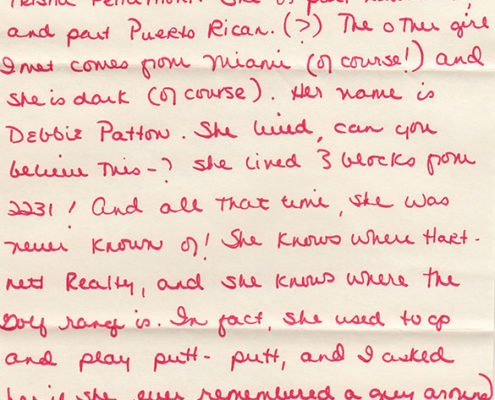 and part Puerto Rican. (?) The other girl
I met comes from Miami (of course!) and
she is dark (of course). Her name is
Debbie Patton. She lived, can you
believe this-? she lived 3 blocks from
2231! And all that time, she was
never known of! She knows where Hart-
nett Realty, and she knows where the
Golf range is. In fact, she used to go
and play putt-putt, and I asked
her if she ever remembered a guy around